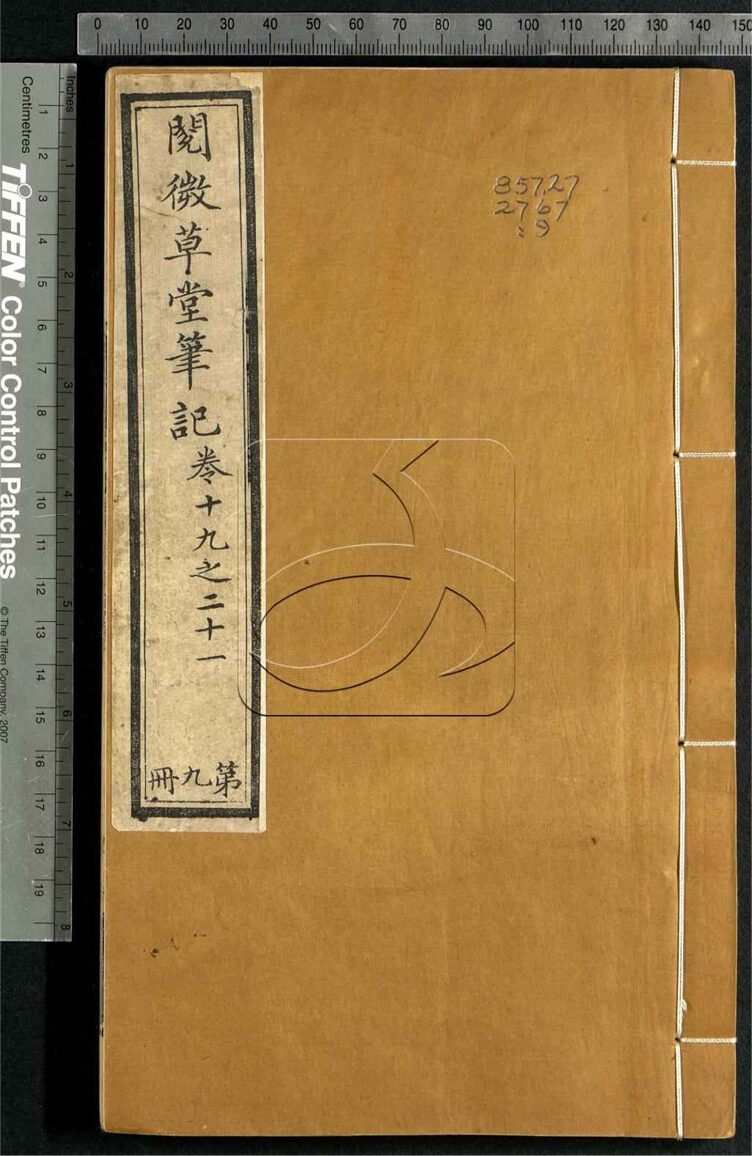 0 10 20 30 40 50 60 70 80 90 100 110 120 130 140 150
Inches
Centimetres
1 2 3 4 5 6 7 8 9 10 11 12 13 14 15 16 17 18 19
1 2 3 4 5 6 7 8
TIFFEN® Color Control Patches
© The Tiffen Company, 2007
閱微草堂筆記
卷十九之二十一
第九冊
857.27
2767
:9